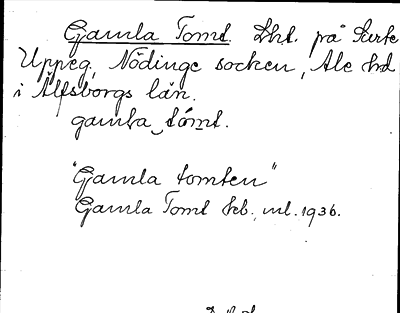 Gamla Tomt. Lht. på Surte
Uppeg, Nödinge socken, Ale hd
i Älfsborgs län.
gamla tómt.
"Gamla tomten"
Gamla Tomt kb., ml. 1936.